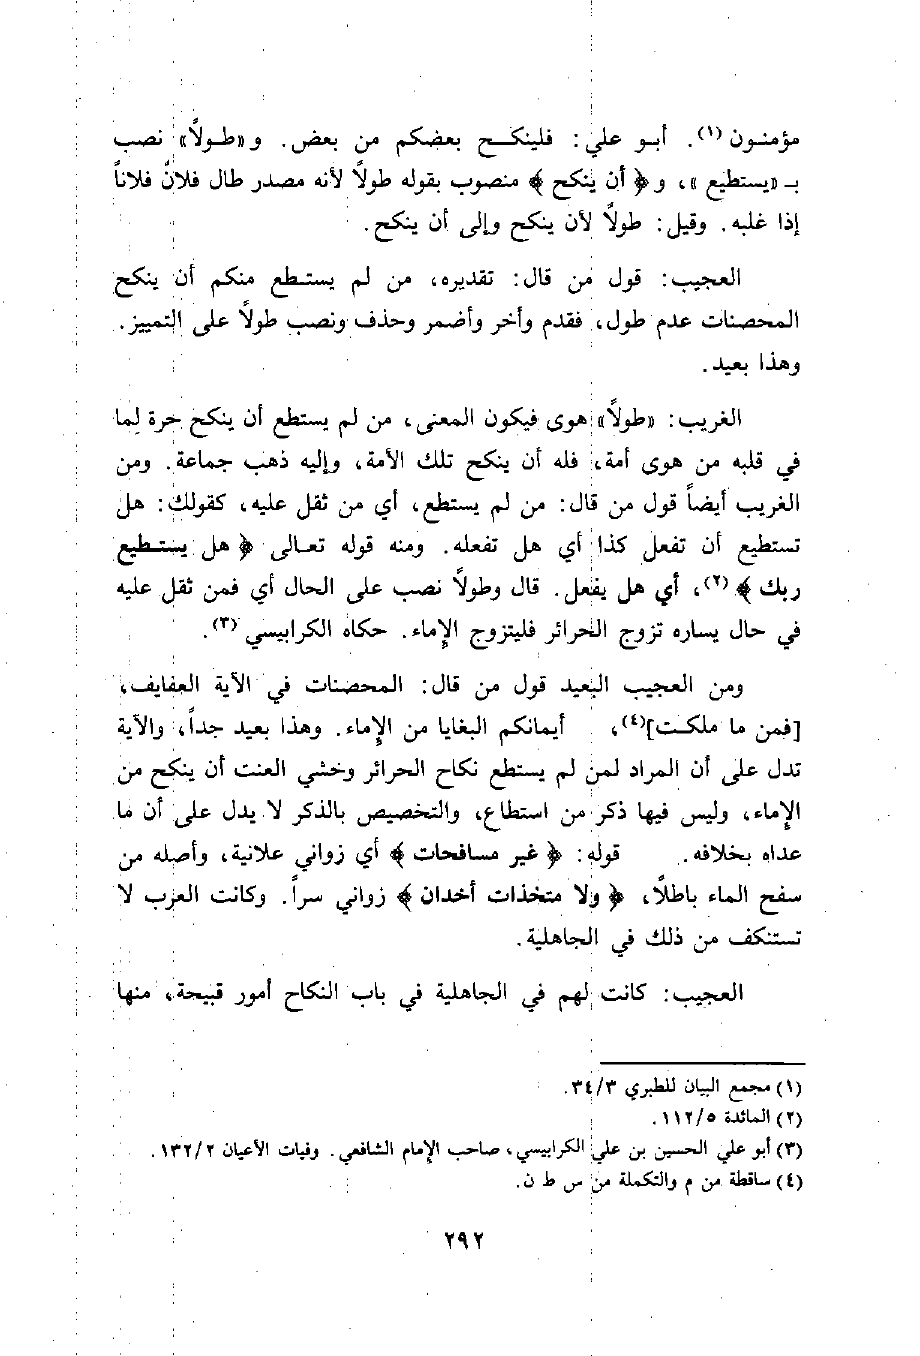 مؤمنون(١). أبو علي: فلينكح بعضكم من بعض. و«طولاً» نصب
بـ «يستطيع»، و﴿ أن ينكح ﴾ منصوب بقوله طولاً لأنه مصدر طال فلانٌ فلاناً
إذا غلبه. وقيل: طولاً لأن ينكح وإلى أن ينكح.
العجيب: قول من قال: تقديره، من لم يستطع منكم أن ينكح
المحصنات عدم طول، فقدم وأخر وأضمر وحذف ونصب طولاً على التمييز.
وهذا بعيد.
الغريب: «طولاً» هوى فيكون المعنى، من لم يستطع أن ينكح حرة لما
في قلبه من هوى أمة، فله أن ينكح تلك الأمة، وإليه ذهب جماعة. ومن
الغريب أيضاً قول من قال: من لم يستطع، أي من ثقل عليه، كقولك: هل
تستطيع أن تفعل كذا أي هل تفعله. ومنه قوله تعالى ﴿ هل يستطيع
ربك ﴾(٢)، أي هل يفعل. قال وطولاً نصب على الحال أي فمن ثقل عليه
في حال يساره تزوج الحرائر فليتزوج الإماء. حكاه الكرابيسي(٣).
ومن العجيب البعيد قول من قال: المحصنات في الآية العفايف،
[فمن ما ملكت](٤)، أيمانكم البغايا من الإماء. وهذا بعيد جداً، والآية
تدل على أن المراد لمن لم يستطع نكاح الحرائر وخشي العنت أن ينكح من
الإماء، وليس فيها ذكر من استطاع، والتخصيص بالذكر لا يدل على أن ما
عداه بخلافه. قوله: ﴿ غير مسافحات ﴾ أي زواني علانية، وأصله من
سفح الماء باطلاً، ﴿ ولا متخذات أخدان ﴾ زواني سراً. وكانت العرب لا
تستنكف من ذلك في الجاهلية.
العجيب: كانت لهم في الجاهلية في باب النكاح أمور قبيحة، منها
(١) مجمع البيان للطبري ٣٤/٣.
(٢) المائدة ١١٢/٥.
(٣) أبو علي الحسين بن علي الكرابيسي، صاحب الإمام الشافعي. وفيات الأعيان ١٣٢/٢.
(٤) ساقطة من م والتكملة من س ط ن.
٢٩٢